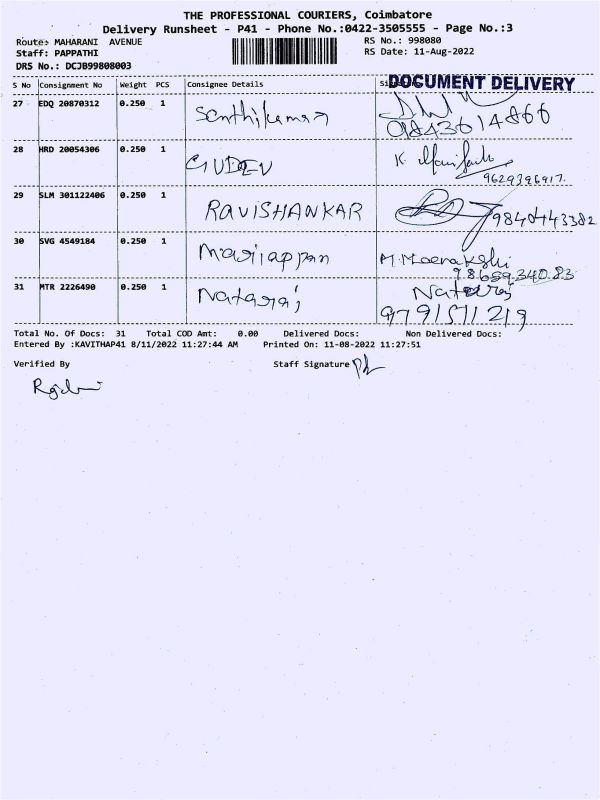 THE PROFESSIONAL COURIERS, Coimbatore
Delivery Runsheet - P41 - Phone No.:0422-3505555 - Page No.:3
Route: MAHARANI AVENUE
RS No.: 998080
Staff: PAPPATHI
RS Date: 11-Aug-2022
DRS No.: DCJB99808003
S No Consignment No Weight PCS Consignee Details DOCUMENT DELIVERY
27 EDQ 20870312 0.250 1 Senthilkumar
9843614866
28 HRD 20054306 0.250 1 GUDEV K.
9629396917.
29 SLM 301122406 0.250 1 RAVISHANKAR 9840443382
30 SVG 4549184 0.250 1 Mariappan M.Meenakshi
9865934083
31 MTR 2226490 0.250 1 Nataraj Nataraj
9791511219
Total No. Of Docs: 31 Total COD Amt: 0.00 Delivered Docs: Non Delivered Docs:
Entered By :KAVITHAP41 8/11/2022 11:27:44 AM Printed On: 11-08-2022 11:27:51
Verified By Staff Signature